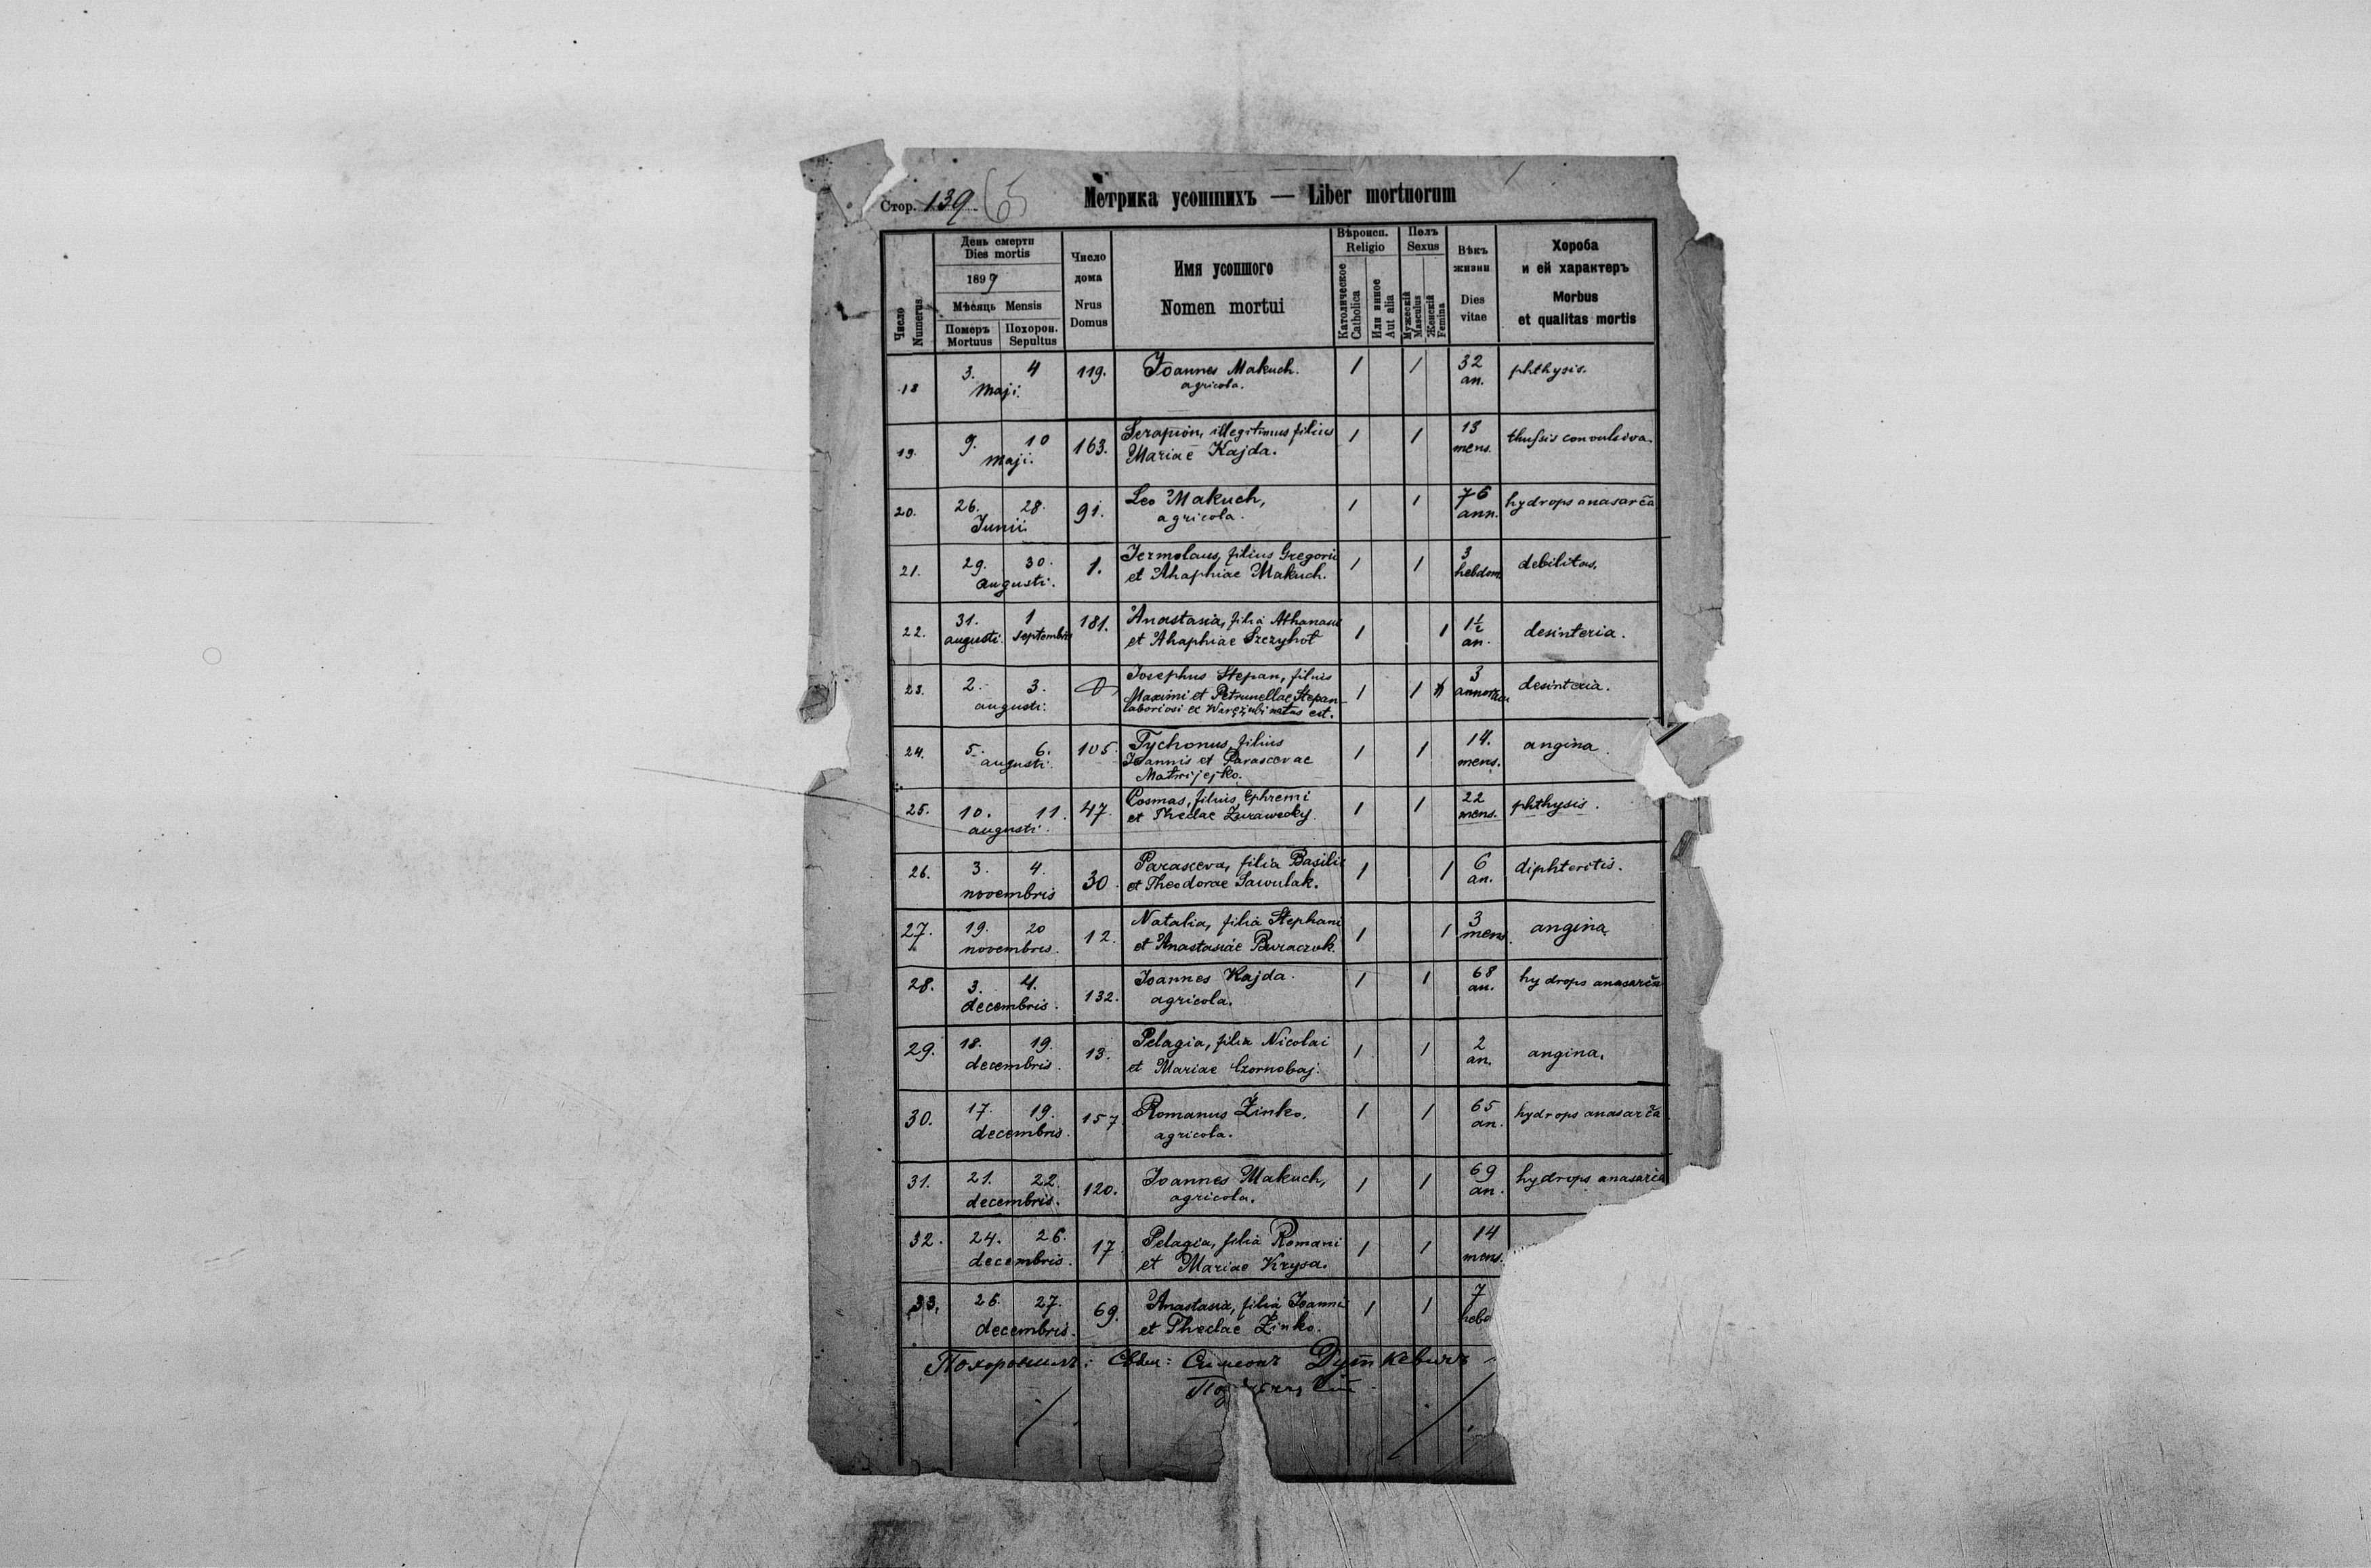 Стор. 139. 65
Метрика усопшихъ — Liber mortuorum
Число
Numerus
День смерти
Dies mortis
1899
Мѣсяць Mensis
Померъ
Mortuus
Похорон.
Sepultus
Число
дома
Nrus
Domus
Имя усопшого
Nomen mortui
Вѣроисп.
Religio
Католическое
Catholica
Или инное
Aut alia
Полъ
Sexus
Мужескій
Masculus
Женскій
Femina
Вѣкъ
жизни
Dies
vitae
Хороба
и ей характеръ
Morbus
et qualitas mortis
18 3. 4 119. Joannes Makuch. 1 1 32 phthysis.
Maji. agricola. an.
19. 9. 10 163. Serapion, illegitimus filius 1 1 13 thussis convulsiva.
Maji. Mariae Kajda. mens.
20. 26. 28. 91. Leo Makuch, 1 1 76 hydrops anasarca
Junii agricola. ann.
21. 29. 30. 1. Jermolaus, filius Gregorii 1 1 3 debilitas.
augusti. et Ahaphiae Makuch. hebdom.
22. 31. 1 181. Anastasia, filia Athanasii 1 1 1½ desinteria.
augusti. septembris et Ahaphiae Szczyhot an.
23. 2. 3. Josephus Stepan, filius 1 1 3 desinteria.
augusti. Maximi et Petrunellae Stepan
laboriosi ex natus est.
24. 5. 6. 105. Tychonus, filius 1 1 14. angina.
augusti. Joannis et Parascevae mens.
Matwijejko.
25. 10. 11. 47 Cosmas, filius Ephremi 1 1 22 phthysis.
augusti. et Theclae Zurawecky mens.
26. 3. 4. 30. Parasceva, filia Basilii 1 1 6 diphteritis.
novembris et Theodorae Sawulak. an.
27. 19. 20 12. Natalia, filia Stephani 1 1 3 angina
novembris. et Anastasiae Buraczok. mens.
28. 3. 4. 132. Joannes Kajda. 1 1 68 hydrops anasarca
decembris. agricola. an.
29. 18. 19. 13. Pelagia, filia Nicolai 1 1 2 angina.
decembris. et Mariae Czornobaj. an.
30. 17. 19. 157. Romanus Żinko. 1 1 65 hydrops anasarca
decembris. agricola. an.
31. 21. 22. 120. Joannes Makuch, 1 1 69 hydrops anasarca
decembris. agricola. an.
32. 24. 26. 17. Pelagia, filia Romani 1 1 14
decembris. et Mariae Krysa. mens.
33. 26. 27. 69. Anastasia, filia Joanni 1 1 7
decembris. et Theclae Żinko. hebd
Похоронилъ: Свящ: Симеонъ Дуткевичъ